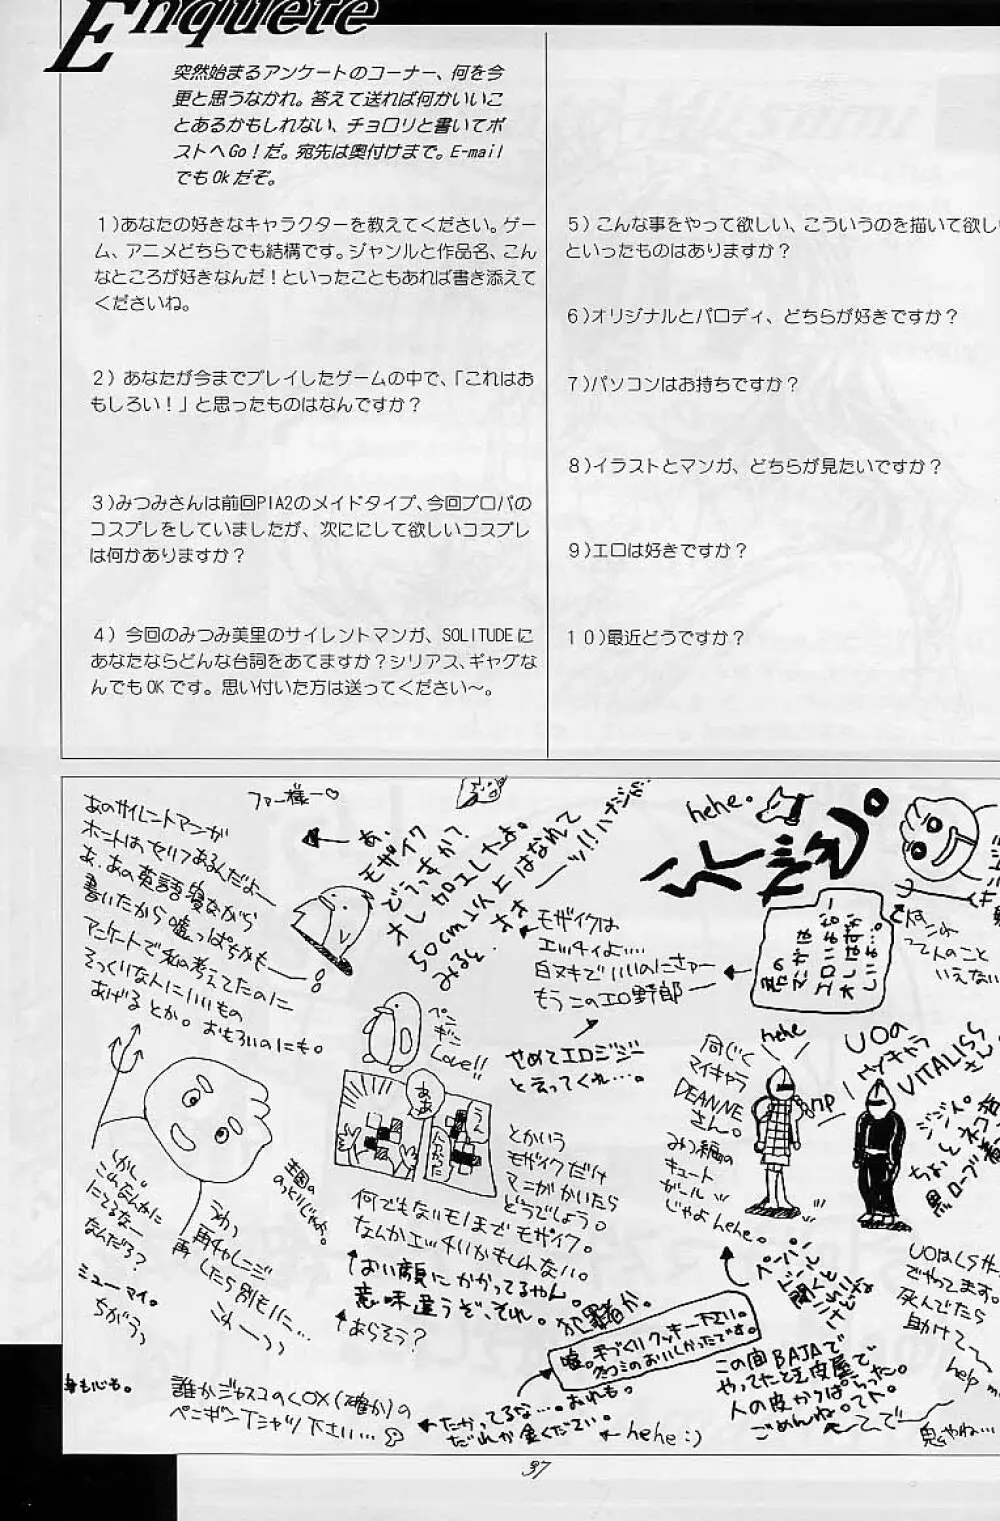 Enquete
突然始まるアンケートのコーナー、何を今
更と思うなかれ。答えて送れば何かいいこ
とあるかもしれない、チョロリと書いてポ
ストへGo!だ。宛先は奥付けまで。E-mail
でもOkだぞ。
1)あなたの好きなキャラクターを教えてください。ゲー
ム、アニメどちらでも結構です。ジャンルと作品名、こん
なところが好きなんだ!といったこともあれば書き添えて
くださいね。
2) あなたが今までプレイしたゲームの中で、「これはお
もしろい!」と思ったものはなんですか?
3)みつみさんは前回PIA2のメイドタイプ、今回プロパの
コスプレをしていましたが、次ににして欲しいコスプレ
は何かありますか?
4) 今回のみつみ美里のサイレントマンガ、SOLITUDEに
あなたならどんな台詞をあてますか?シリアス、ギャグな
んでもOKです。思い付いた方は送ってください〜。
5) こんな事をやって欲しい、こういうのを描いて欲し
といったものはありますか?
6)オリジナルとパロディ、どちらが好きですか?
7)パソコンはお持ちですか?
8)イラストとマンガ、どちらが見たいですか?
9)エロは好きですか?
10)最近どうですか?
あのサイレントマンガ
ホントは、セリフあるんだよー
あ、あの英語寝ながら
書いたから嘘っぱちかもー
アンケートで私の考えてたのに
そっくりな人にいいもの
あげるとか。おもろいのにも。
ファー様ー♡
あ、
モザイク
どうっすか?
オレ加工したよ。
50cm以上はなれて
みると
hehe.
モザイクは
エッチィよ…
白ヌキでいいのにさァー
もうこのエロ野郎
やめてエロジジー
と云ってくれ…。
ペン
ギン
Love!!
ああ
とかいう
モザイクだけ
マンガかいたら
どうでしょう。
何でもないモノまでモザイク。
なんかエッチいかもしんない。
おい顔にかかってるやん。
意味違うぞ、それ。犯罪者か。
あらそう?
しかし。
これなんかに
にてるなー
なんだろ?
ミューマイ。
ちがうっ
うわっ
再チャレンジ
再
したら別もんに…
こわーっっ
同じく
マイキャラ
DEANNE
さん。
みつ編の
キュート
ガール
じゃよhehe。
hehe
UOの
マイキャラ
VITALISさ
ん
黒ローブ
嘘。手づくりクッキー下さい。
クチコミのおいしかったです。
この間BAJAで
やってたと毛皮屋で
人の皮かっぱらった。
ごめんねってへ。
てへで
鬼やね…
UOはLSサー
でやってます。
死んでたら
助けて〜
help m
身も心も。
誰かジャスコのCOX(確か)の
ペンギンTシャツ下さい…
たかってるな…。おれも。
だれか金ください。
hehe:)
37